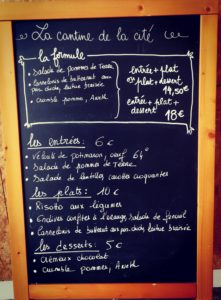 La cantine de la cité
la formule
• Salade de pommes de Terre
• Carrelons de butternut aux
pois chiche, laitue braisée
• crumble pomme,
entrée + plat
ou plat + dessert
14,50€
entrée + plat +
dessert
18€
les entrées: 6€
• Velouté de potimarron, oeuf 64°
• Salade de pommes de Terre
• Salade de lentilles carottes croquantes
les plats: 10€
• Risotto aux légumes
• Endives confites à l'orange, salade de fenouil
• de butternut aux pois chiche, laitue braisée
les desserts: 5€
• Crémeux chocolat
• crumble pommes,